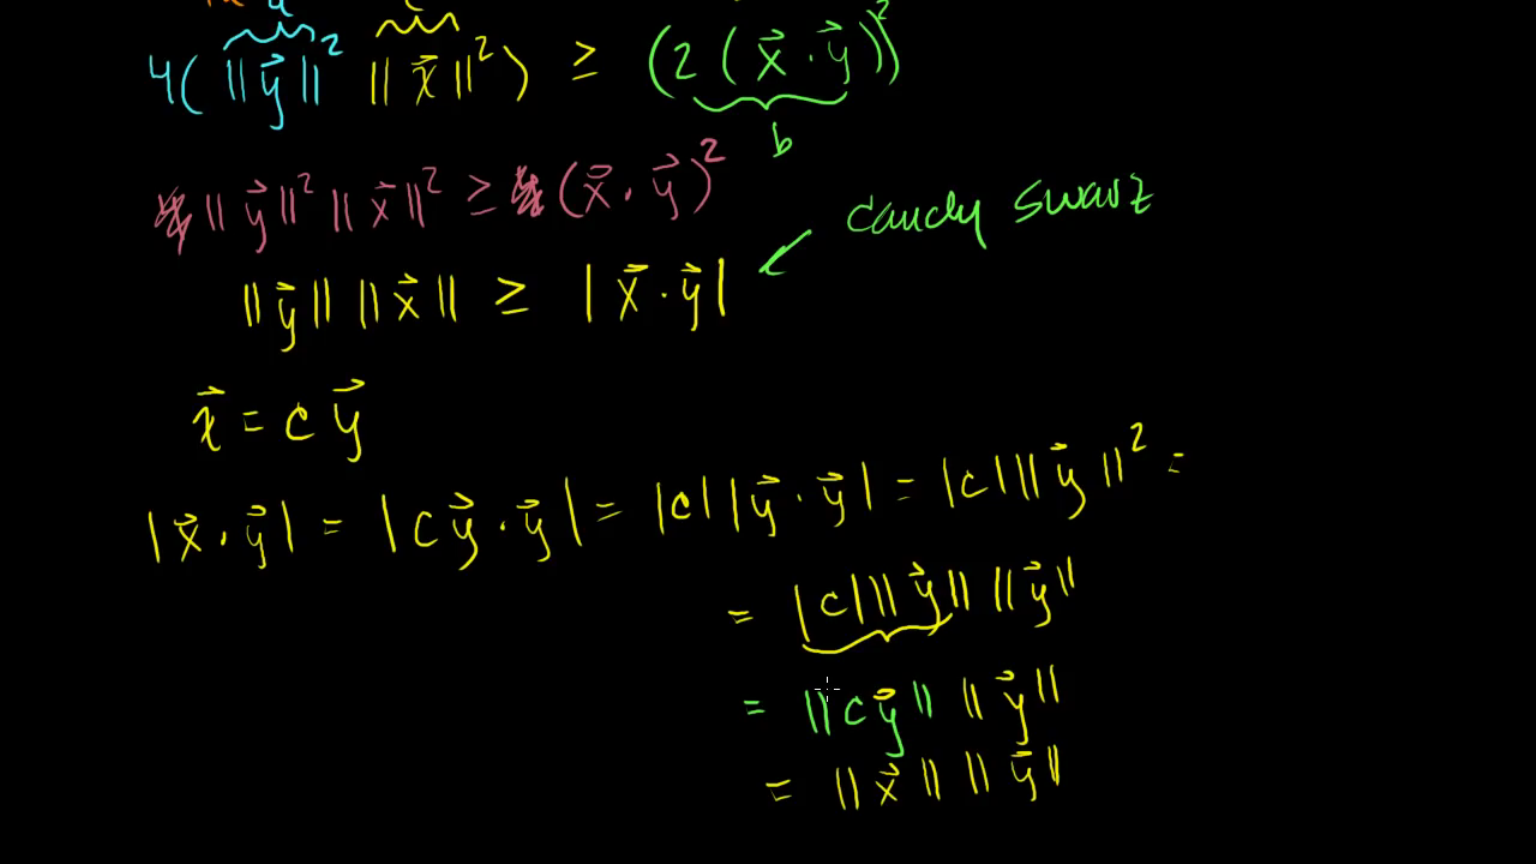 a c
4( ‖y⃗‖² ‖x⃗‖² ) ≥ (2 (x⃗ · y⃗))²
b
‖y⃗‖² ‖x⃗‖² ≥ (x⃗ · y⃗)²
cauchy swarz
‖y⃗‖ ‖x⃗‖ ≥ |x⃗ · y⃗|
x⃗ = c y⃗
|x⃗ · y⃗| = |c y⃗ · y⃗| = |c| |y⃗ · y⃗| = |c| ‖y⃗‖² =
= |c| ‖y⃗‖ ‖y⃗‖
= ‖c y⃗‖ ‖y⃗‖
= ‖x⃗‖ ‖y⃗‖